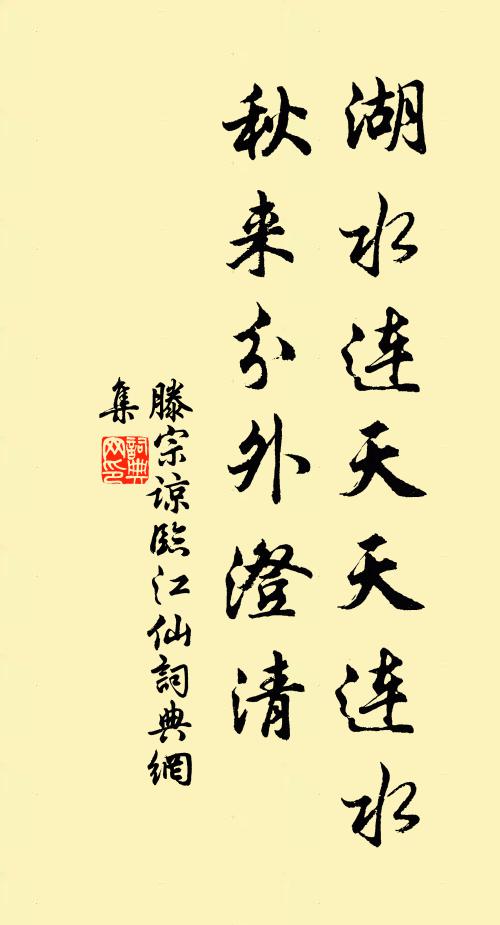 湖水连天天连水
秋来分外澄清
滕宗谅临江仙詞典網
集
詞典網印